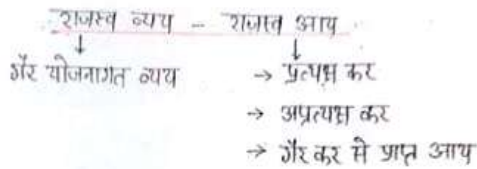 राजस्व व्यय - राजस्व आय
↓ ↓
गैर योजनागत व्यय → प्रत्यक्ष कर
→ अप्रत्यक्ष कर
→ गैर कर से प्राप्त आय